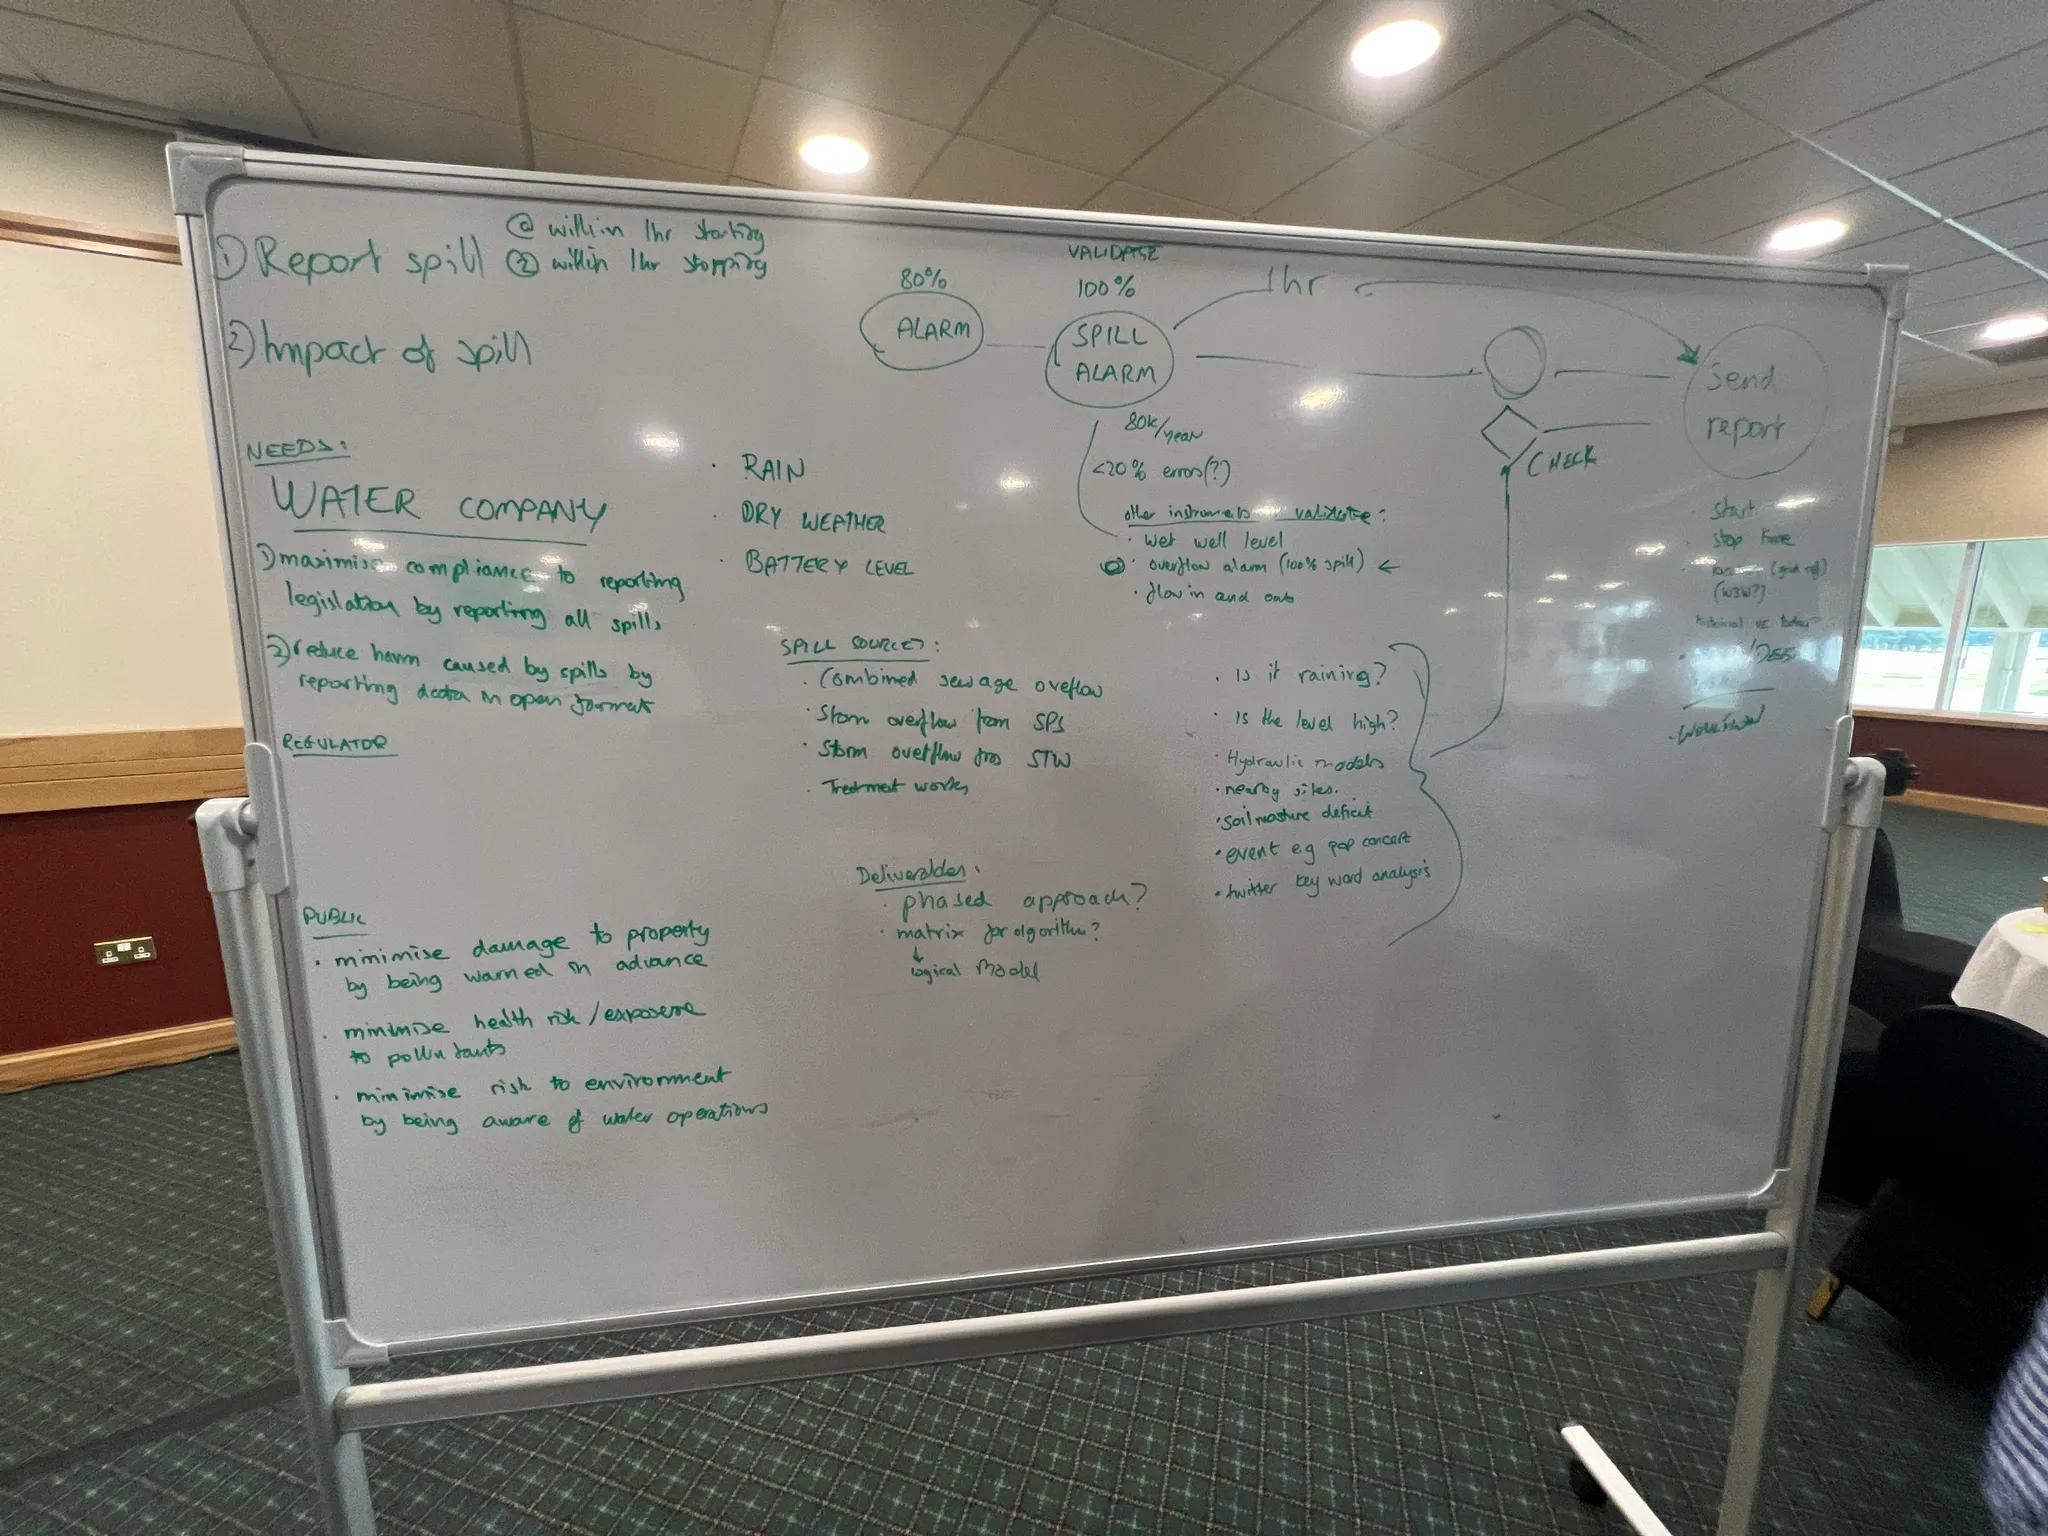 1) Report spill
@ within 1hr starting
② within 1hr stopping
2) Impact of spill
NEEDS:
WATER COMPANY
1) maximise compliance to reporting
legislation by reporting all spills
2) reduce harm caused by spills by
reporting data in open format
REGULATOR
PUBLIC
· minimise damage to property
by being warned in advance
· minimise health risk/exposure
to pollutants
· minimise risk to environment
by being aware of water operations
· RAIN
· DRY WEATHER
· BATTERY LEVEL
80%
ALARM
VALIDATE
100%
SPILL
ALARM
1hr
CHECK
Send
report
80k/year
<20% errors(?)
other instruments validate:
· wet well level
· overflow alarm (100% spill) ←
· flow in and out
SPILL SOURCES:
· Combined sewage overflow
· Storm overflow from SPS
· Storm overflow from STW
· Treatment works
Deliverables:
· phased approach?
· matrix for algorithm?
↓
logical model
· Is it raining?
· Is the level high?
· Hydraulic models
· nearby sites.
· soil moisture deficit
· event eg pop concert
· twitter key word analysis
start
· stop time
(grid ref)
(W3W?)
today